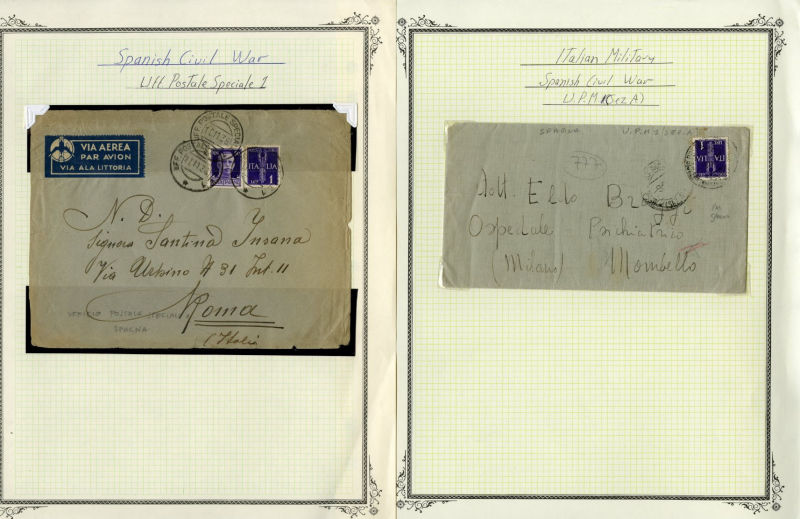 Spanish Civil War
Uff Postale Speciale 1
VIA AEREA
PAR AVION
VIA ALA LITTORIA
UFF POSTALE SPECIALE
ITALIA
1
N. D.
Signora Santina Insana
Via Urbino # 31 Int. 11
Roma
(Italia
UFFICIO POSTALE SPECIALE
SPAGNA
Italian Military
Spanish Civil War
U.P.M. 1(Sez A)
SPAGNA U.P.M 1/SEZ.A
777
Dott. Elio
Ospedale Psichiatrico
(Milano) Mombello